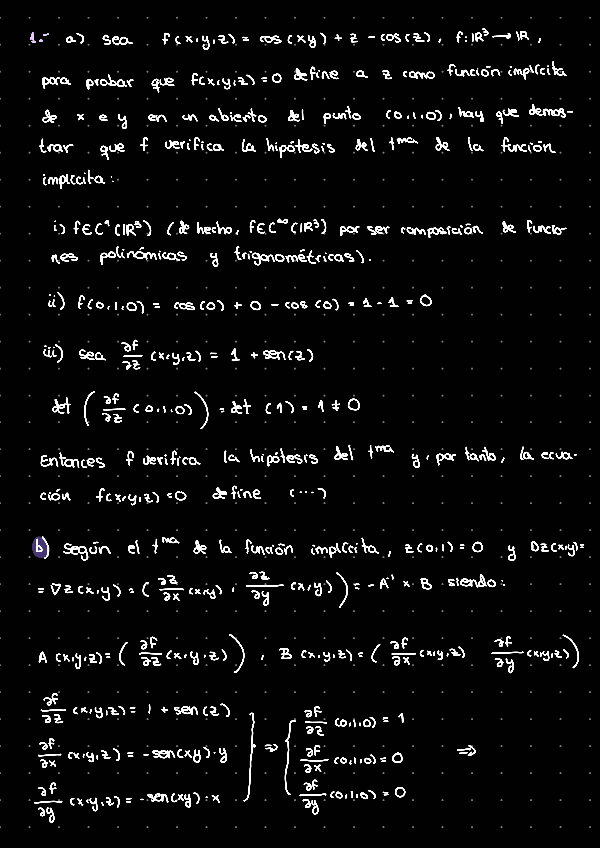 1.- a) sea f(x,y,z) = cos(xy) + z - cos(z), f: ℝ³ → ℝ,
para probar que f(x,y,z) = 0 define a z como función implícita
de x e y en un abierto del punto (0,1,0), hay que demos-
trar que f verifica la hipótesis del tᵐᵃ de la función
implícita:
i) f ∈ C¹(ℝ³) (de hecho, f ∈ C^∞(ℝ³) por ser composición de funcio-
nes polinómicas y trigonométricas).
ii) f(0,1,0) = cos(0) + 0 - cos(0) = 1 - 1 = 0
iii) sea ∂f/∂z (x,y,z) = 1 + sen(z)
det (∂f/∂z (0,1,0)) = det (1) = 1 ≠ 0
Entonces f verifica la hipótesis del tᵐᵃ y, por tanto, la ecua-
ción f(x,y,z) = 0 define (...)
b) Según el tᵐᵃ de la función implícita, z(0,1) = 0 y Dz(x,y) =
= ∇z(x,y) = (∂z/∂x (x,y), ∂z/∂y (x,y)) = -A⁻¹ × B siendo:
A(x,y,z) = (∂f/∂z (x,y,z)), B(x,y,z) = (∂f/∂x (x,y,z) ∂f/∂y (x,y,z))
∂f/∂z (x,y,z) = 1 + sen(z) ⇒ ∂f/∂z (0,1,0) = 1
∂f/∂x (x,y,z) = -sen(xy)·y ∂f/∂x (0,1,0) = 0 ⇒
∂f/∂y (x,y,z) = -sen(xy)·x ∂f/∂y (0,1,0) = 0